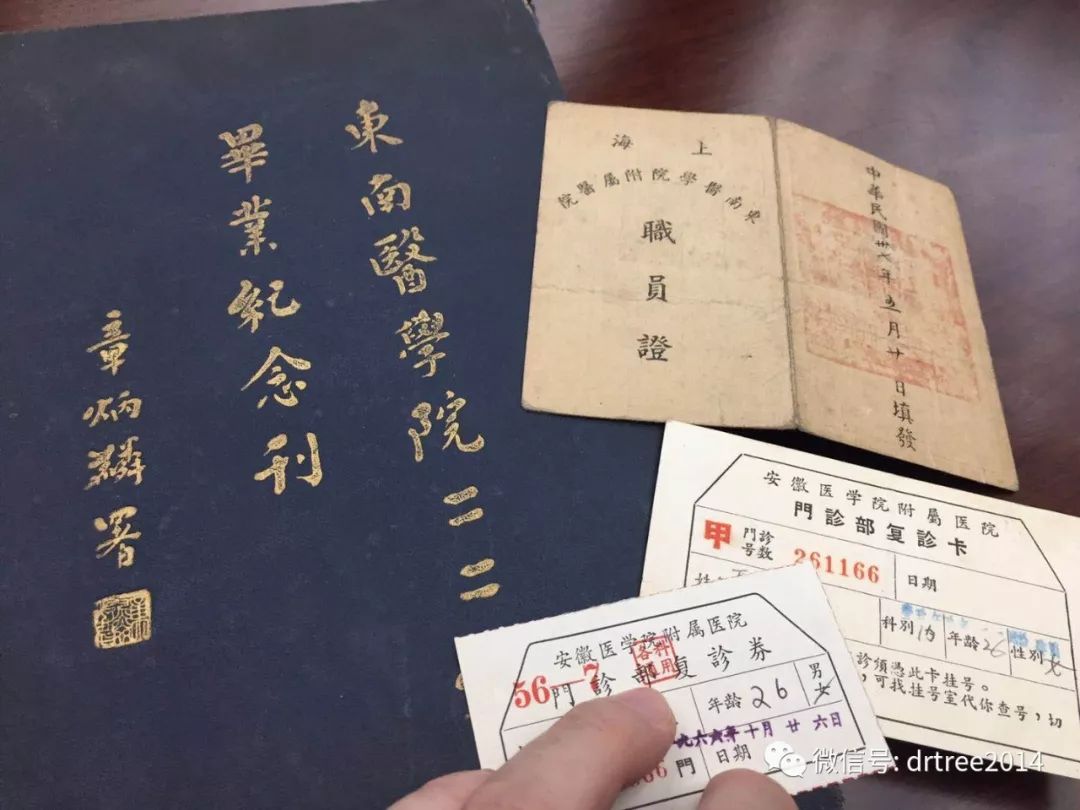 東南醫學院二二
畢業紀念刊
章炳麟署
上海
東南醫學院附属醫院
職員證
中華民國卅八年五月廿日填發
安徽医学院附属医院
門診部复診卡
甲 門診号数 261166 日期
姓
科別 内 年龄 26 性别 女
診須憑此卡挂号。
，可找挂号室代你查号，切
安徽医学院附属医院
56-7 門診部复診券
各科用
年龄 26 男女
六六年十月廿六日
66 門 日期
微信号: drtree2014